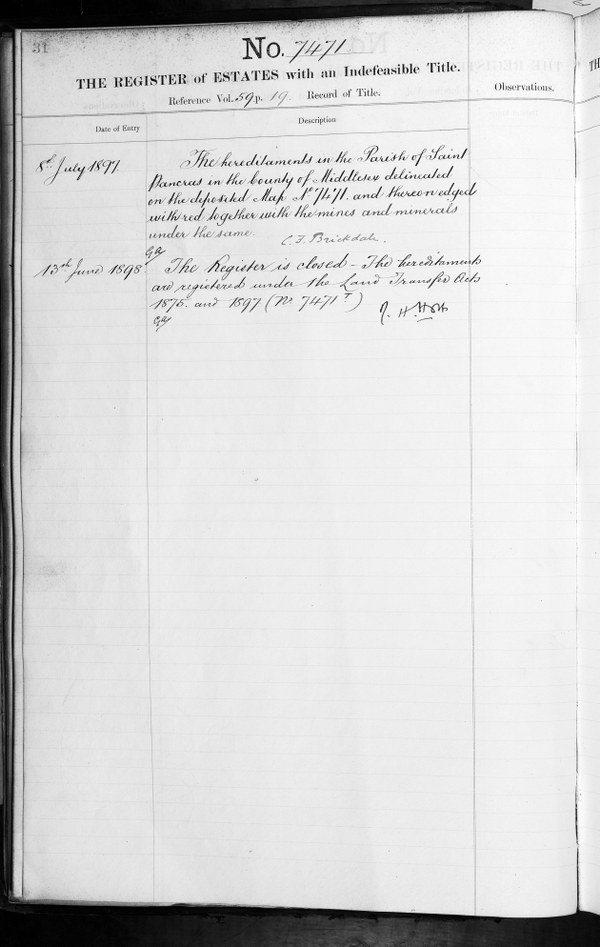 31
No. 7471
THE REGISTER of ESTATES with an Indefeasible Title.
Reference Vol. 59 p. 19 Record of Title.
Observations.
Date of Entry
Description
8th July 1897
The hereditaments in the Parish of Saint
Pancras in the County of Middlesex delineated
on the deposited Map No 7471. and thereon edged
with red together with the mines and minerals
under the same.
C. F. Brickdale.
13th June 1898
The Register is closed – The hereditaments
are registered under the Land Transfer Acts
1875. and 1897 (No. 7471 T)
R. H. Holt